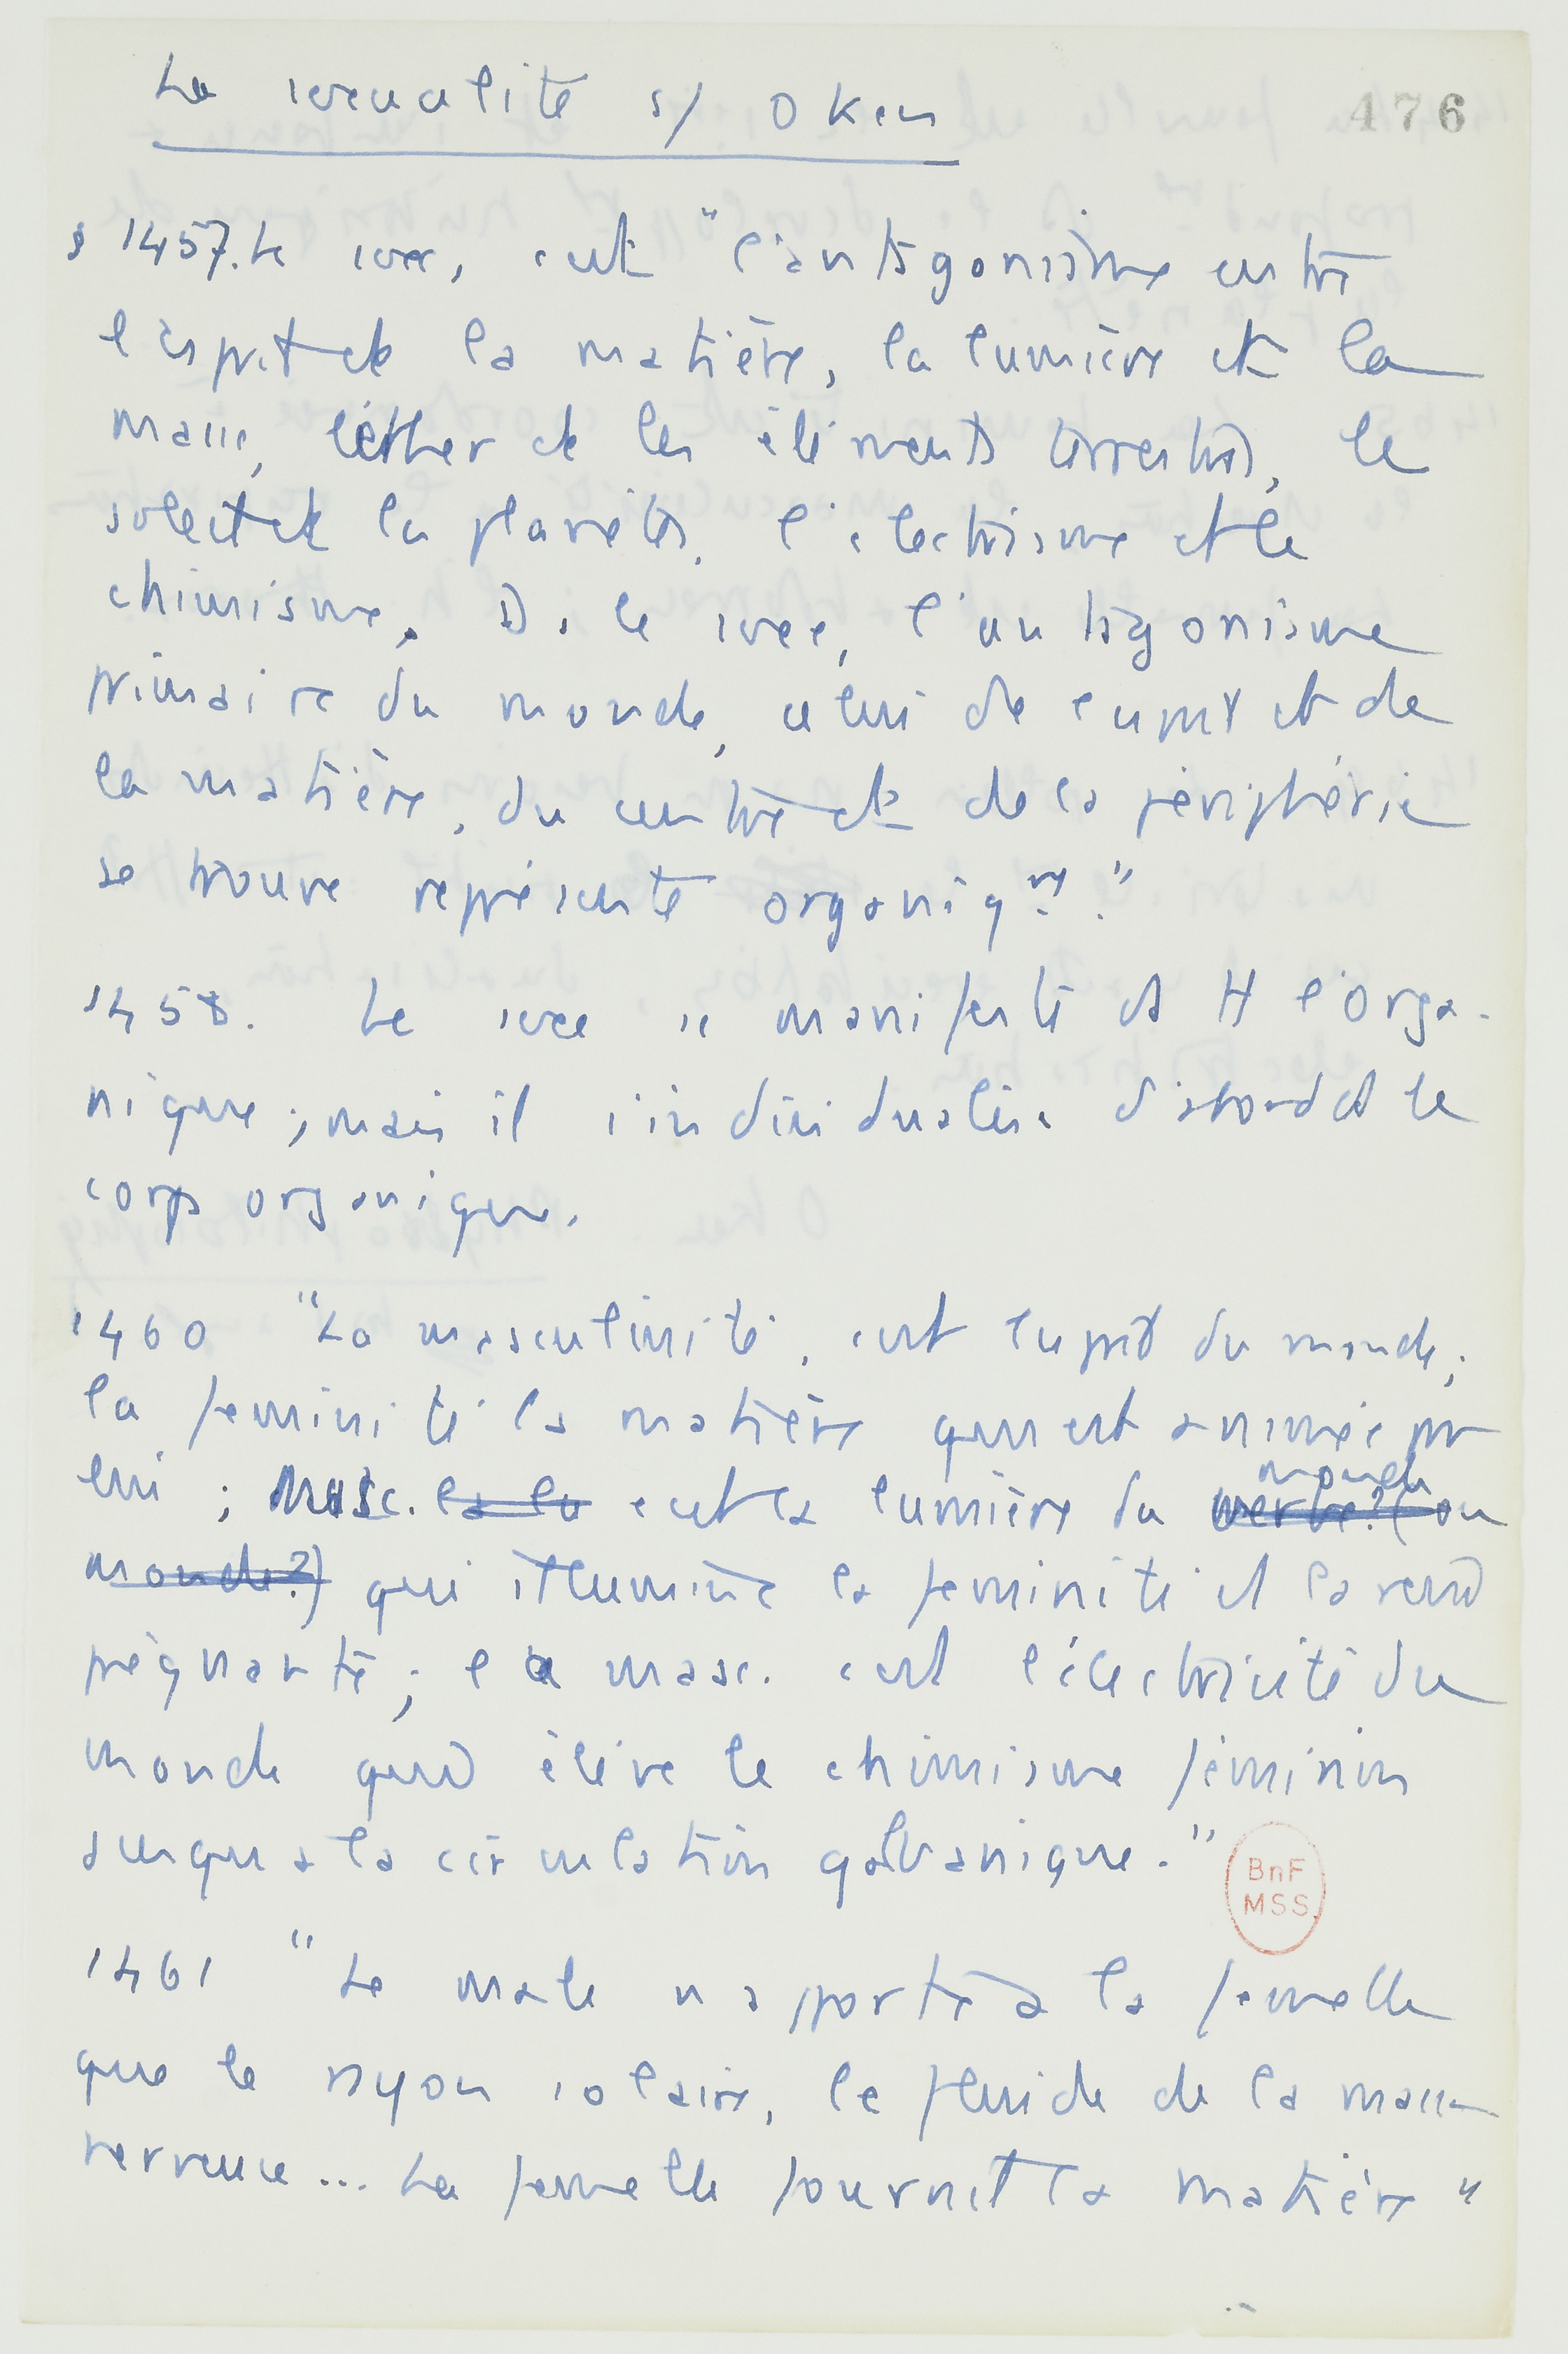 La sexualité s/ Oken
476
§ 1457. Le sexe, c'est "l'antagonisme entre
l'esprit et la matière, la lumière et la
masse, l'éther et les éléments terrestres, le
soleil et la planète, l'électrisme et le
chimisme. Ds le sexe, l'antagonisme
primaire du monde, celui de l'esprit et de
la matière, du centre et de la périphérie
se trouve représenté organiqnt."
1458. Le sexe se manifeste ds tt l'orga-
nique ; mais il s'individualise d'abord ds le
corps organique.
1460 "La masculinité, c'est l'esprit du monde ;
la féminité la matière qui est animée par
lui ; Masc. la lu c'est la lumière du monde
verbe? (ou
monde?) qui illumine la féminité et la rend
prégnante ; la masc. c'est l'électricité du
monde qui élève le chimisme féminin
jusqu'à la circulation galvanique."
BnF
MSS
1461 "Le mâle n'apporte à la femelle
que le rayon solaire, le fluide de la masse
nerveuse... La femelle fournit la matière"